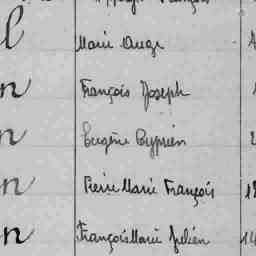 l Marie Ange
n François Joseph
n Eugène Cyprien
n Pierre Marie François 18
n François Marie Julien 14